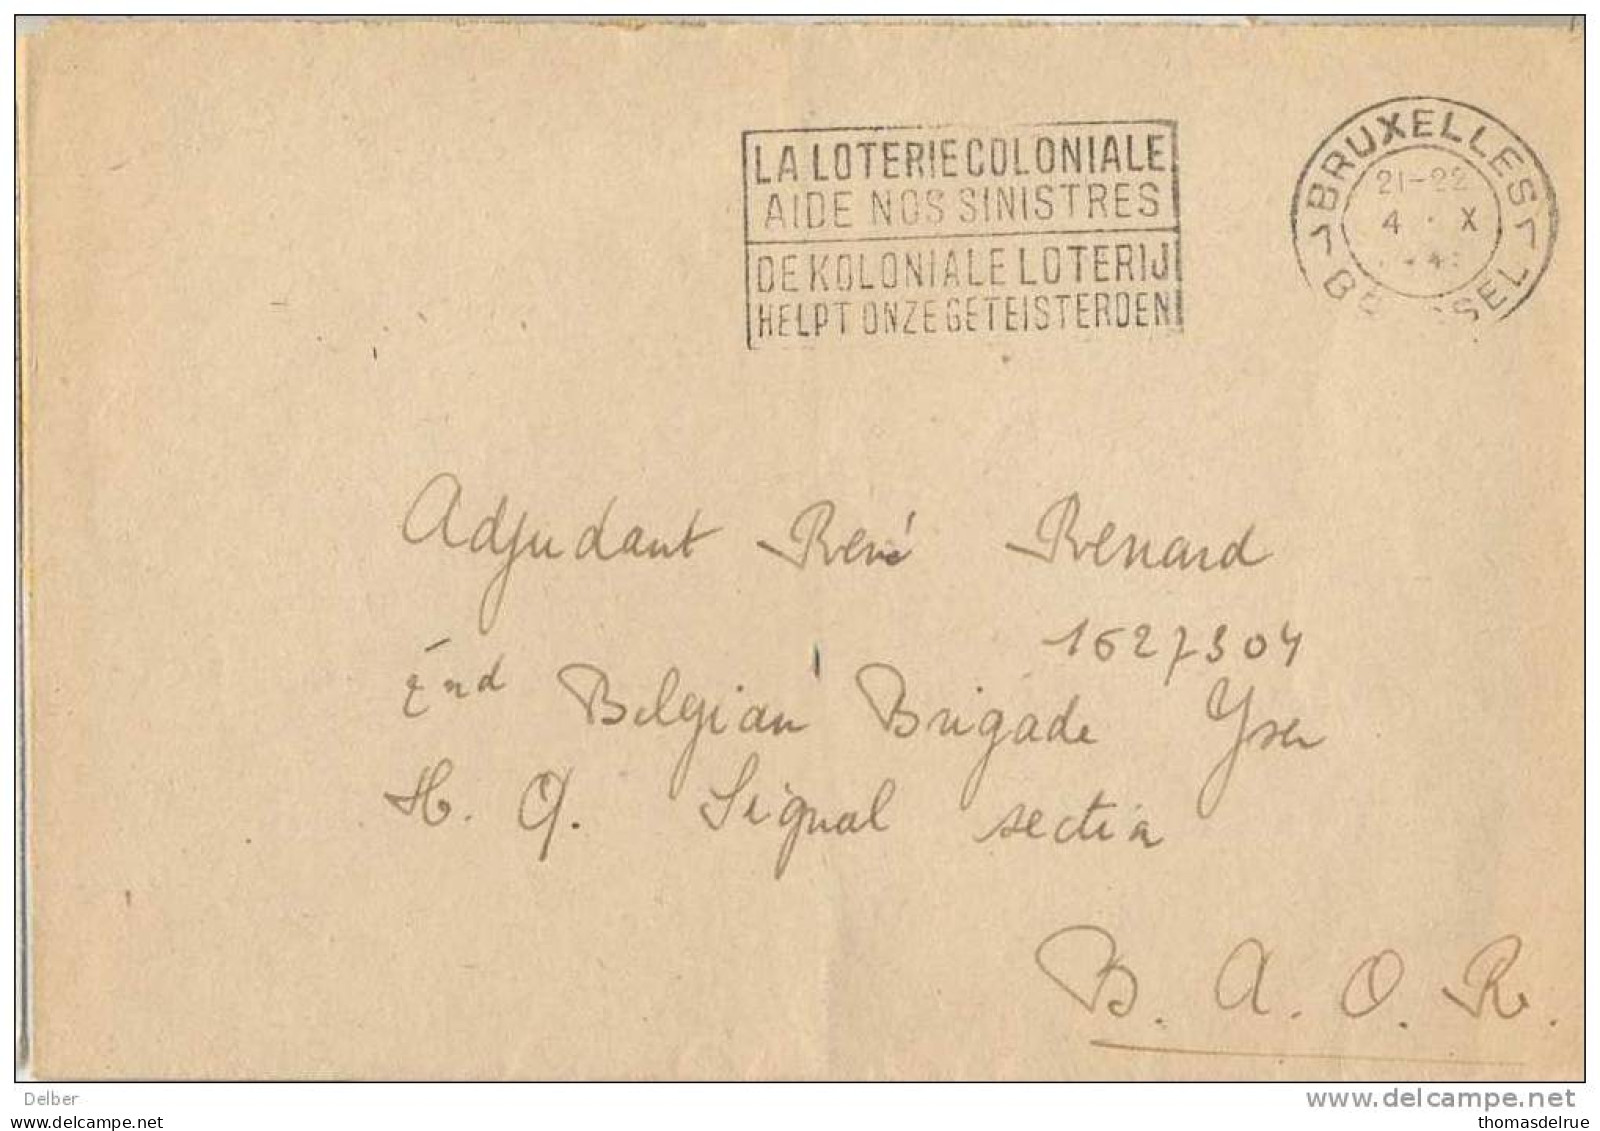 LA LOTERIE COLONIALE
AIDE NOS SINISTRES
DE KOLONIALE LOTERIJ
HELPT ONZE GETEISTERDEN
BRUXELLES
21-22
4 · X
Adjudant René Renard
1627304
2nd Belgian Brigade Yser
H. Q. Signal section
B. A. O. R.
Delber
www.delcampe.net
mytheresa.com
thomasdelrue